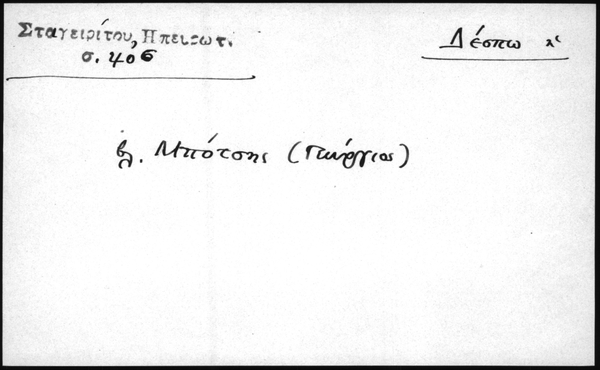 Σταγειρίτου, Ηπειρωτ.
σ. 406
Δέσπω
βλ. Μπότσης (Γιώργιος)